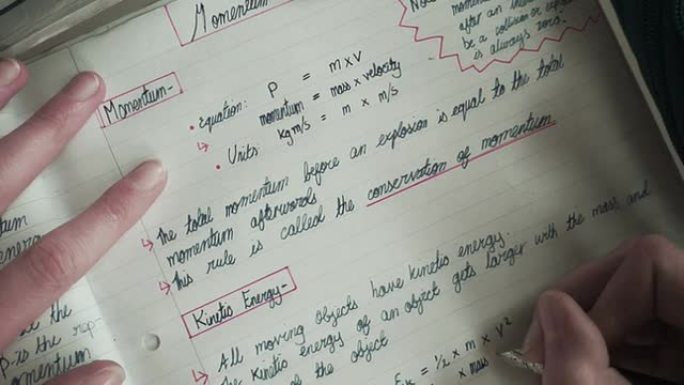 Momentum
momentum
after an
be a collision or
is always zero.
Momentum-
• Equation: P = m x v
momentum = mass x velocity
• Units: kgm/s = m x m/s
The total momentum before an explosion is equal to the total
momentum afterwards
This rule is called the conservation of momentum
Kinetic Energy-
All moving objects have kinetic energy.
The kinetic energy of an object gets larger with the mass and
of the object
Ek = 1/2 x m x v²
x mass
the
P is the
momentum